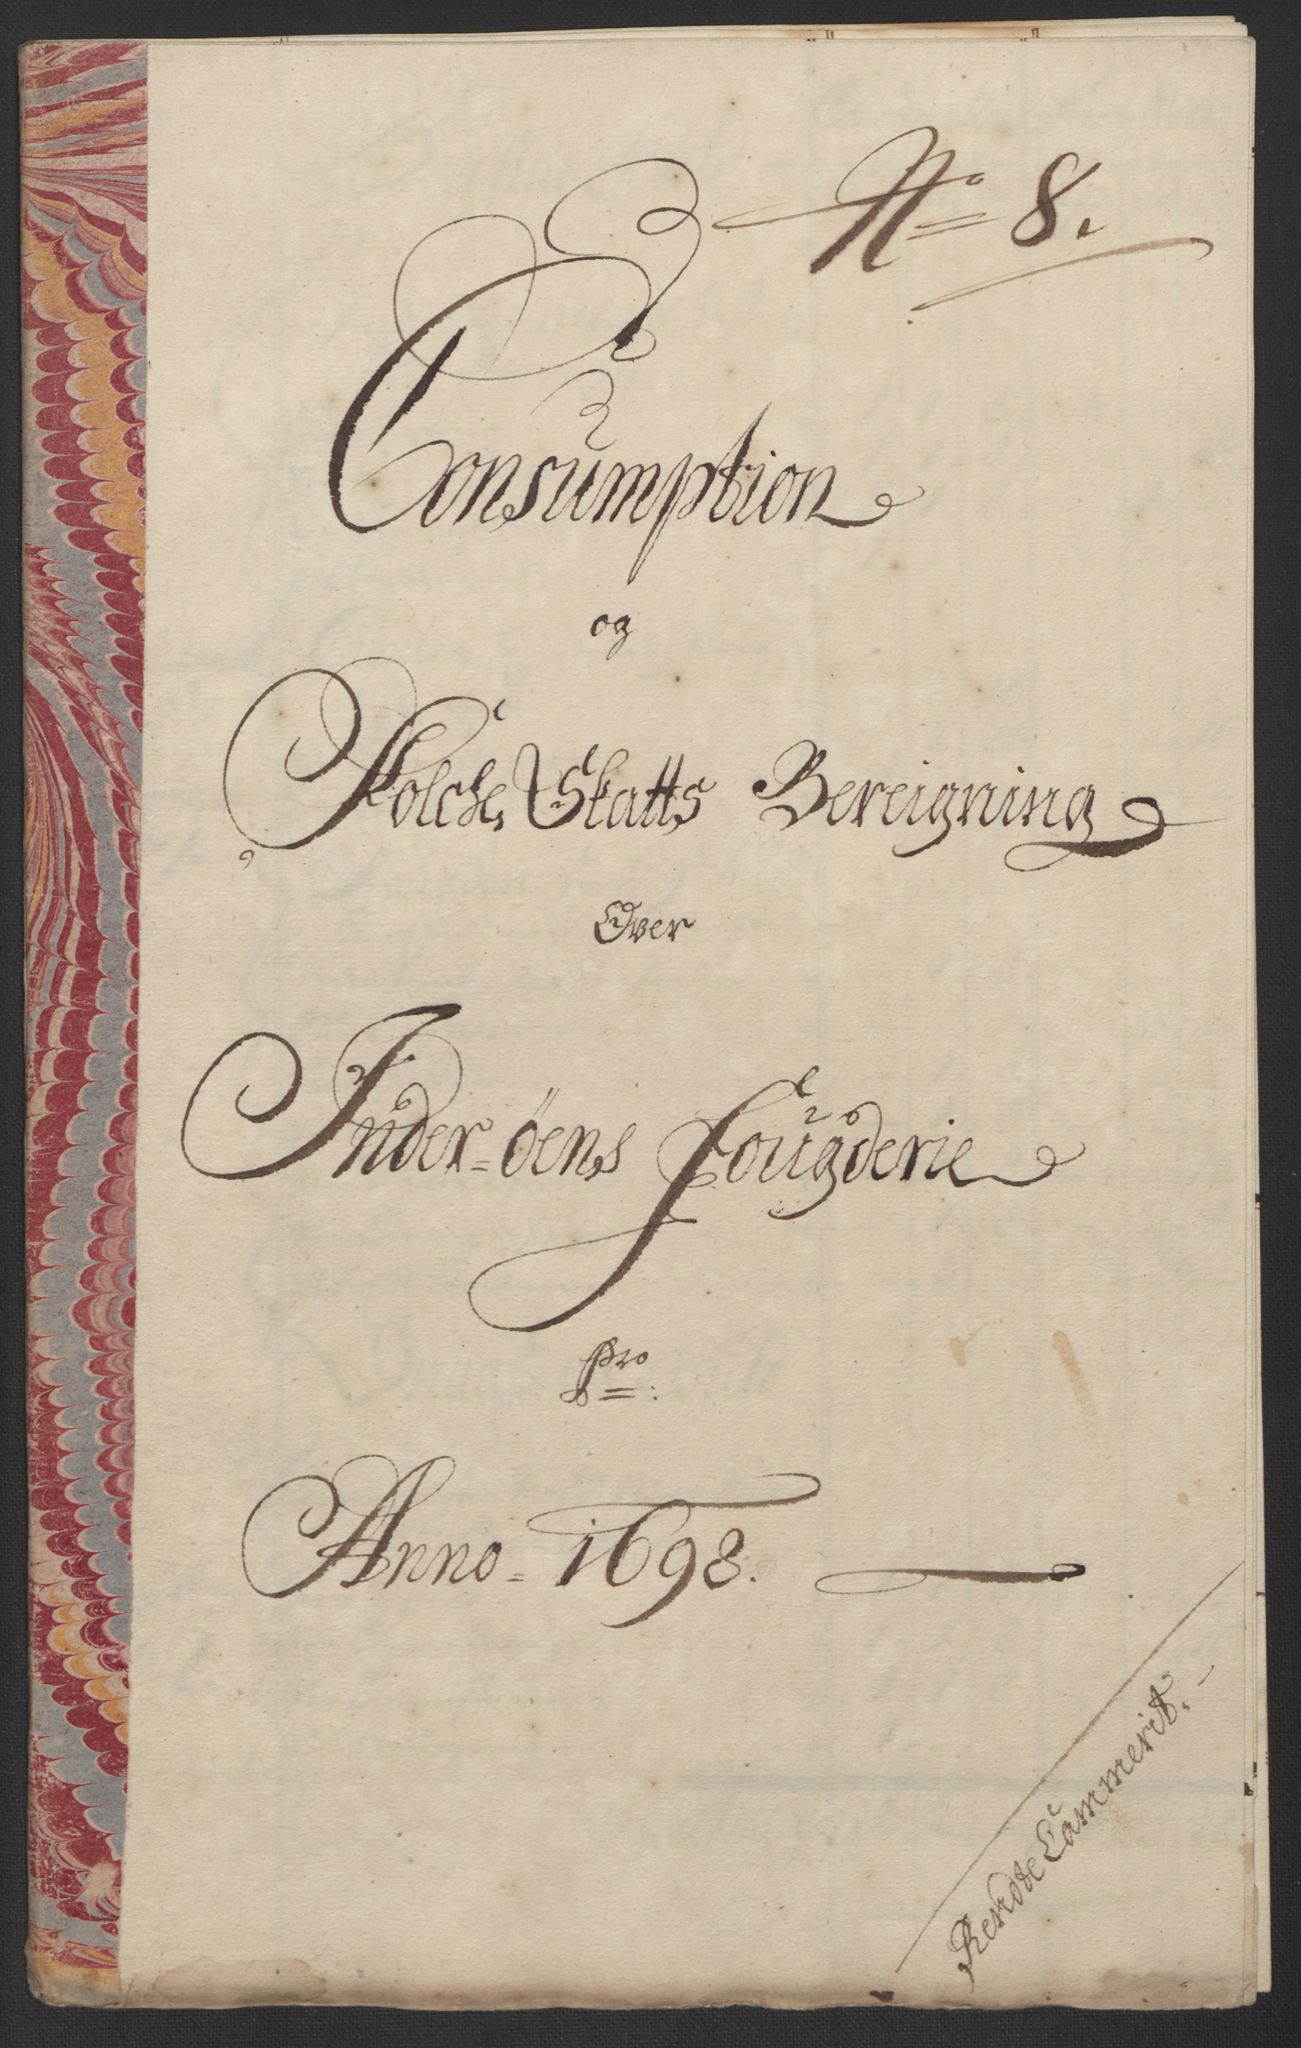 No 8.
Consumption
og
Folche Skatts Bereigning
Over
Inder-öens Fougderie
Pro
Anno 1698.
Rendte Cammerit.